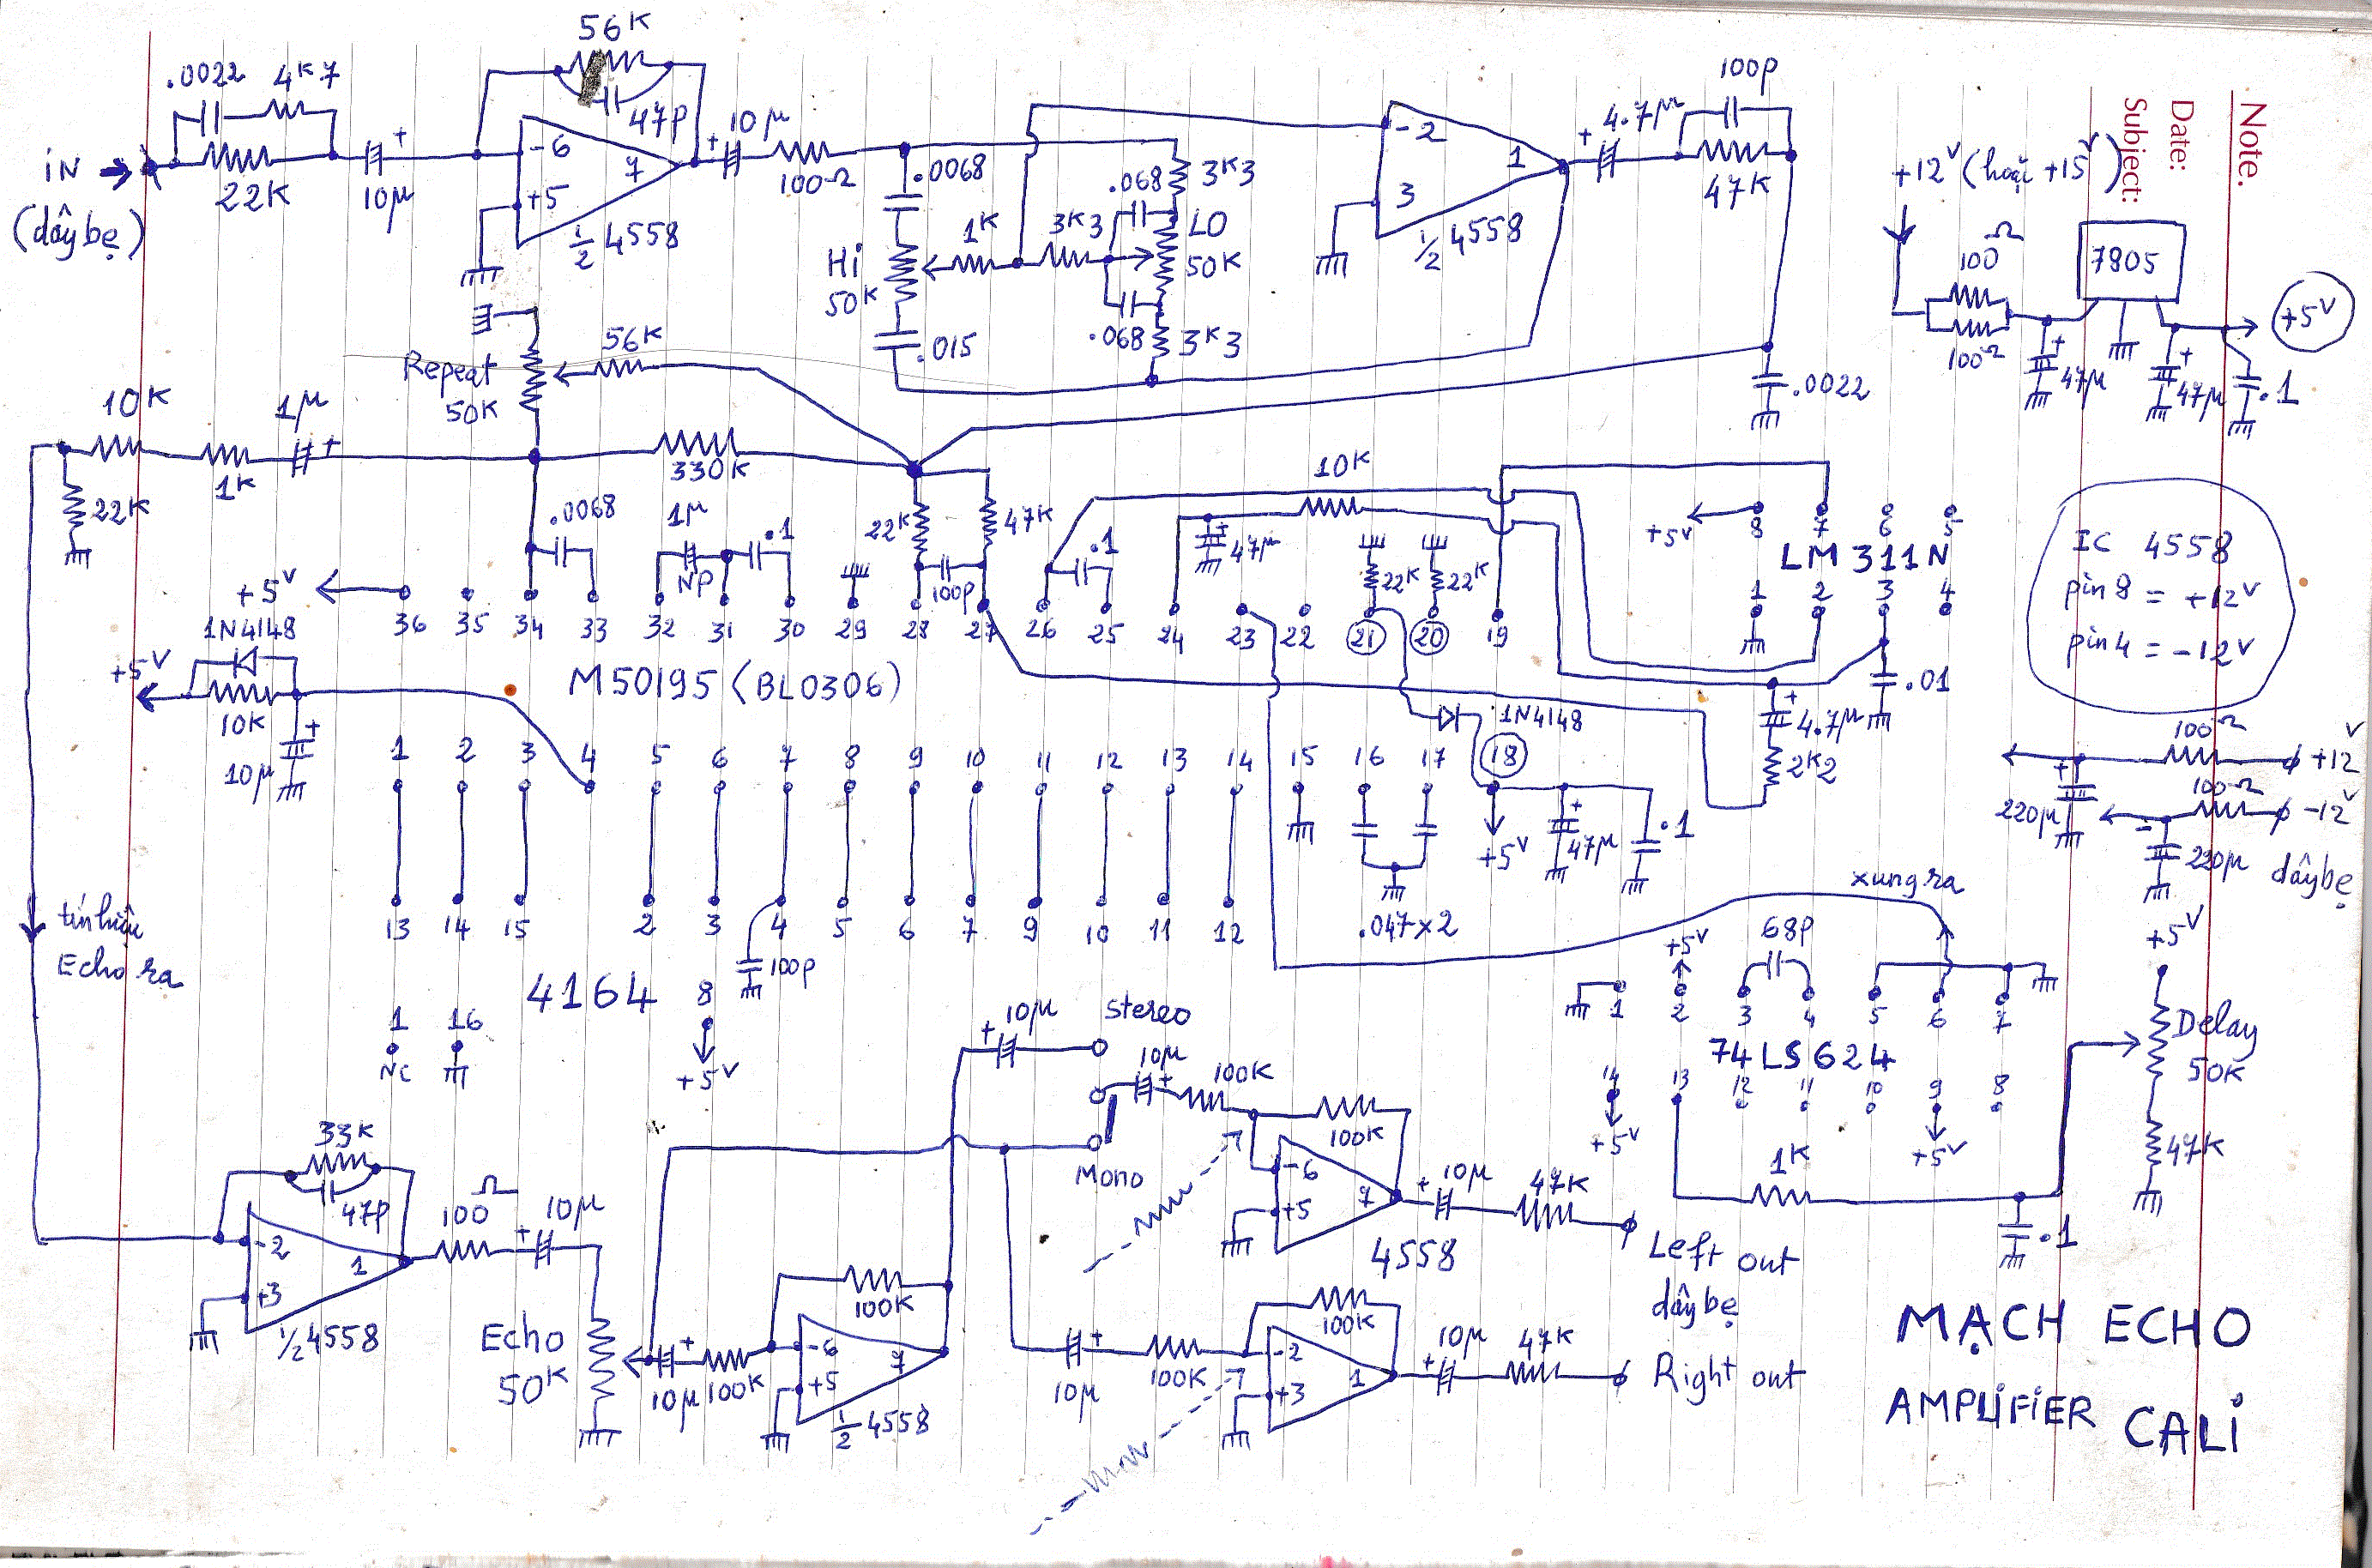 56K
.0022 4K7
47p
iN
(dây bẹ)
22K
10µ
-6
+5
7
½ 4558
10µ
100Ω
.0068
Hi
50K
.015
1K
3K3
.068
3K3
LO
50K
.068
3K3
-2
3
1
½ 4558
4.7µ
100p
47K
.0022
+12V (hoặc +15V)
100Ω
100Ω
7805
47µ
47µ
.1
+5V
Note.
Date:
Subject:
Repeat
50K
56K
10K
1K
1µ
22K
330K
.0068
1µ
NP
.1
22K
47K
100p
.1
10K
47µ
22K
22K
+5V
8 7 6 5
LM 311N
1 2 3 4
.01
4.7µ
2K2
IC 4558
pin 8 = +12V
pin 4 = -12V
+5V
36 35 34 33 32 31 30 29 28 27 26 25 24 23 22 21 20 19
M50195 (BL0306)
1N4148
+5V
10K
10µ
1 2 3 4 5 6 7 8 9 10 11 12 13 14 15 16 17 18
1N4148
+5V
47µ
.1
.047x2
13 14 15 2 3 4 5 6 7 9 10 11 12
100p
4164
1
NC
16
8
+5V
tín hiệu
Echo ra
100Ω
+12V
220µ
100Ω
-12V
220µ
dây bẹ
xung ra
+5V
68p
1 2 3 4 5 6 7
74LS624
14 13 12 11 10 9 8
+5V
+5V
1K
.1
+5V
Delay
50K
47K
33K
47p
-2
+3
1
½ 4558
100Ω
10µ
Echo
50K
10µ
100K
-6
+5
7
100K
½ 4558
10µ
stereo
Mono
10µ
100K
100K
-6
+5
7
4558
10µ
47K
Left out
dây bẹ
10µ
100K
100K
-2
+3
1
10µ
47K
Right out
MẠCH ECHO
AMPLiFiER CALi